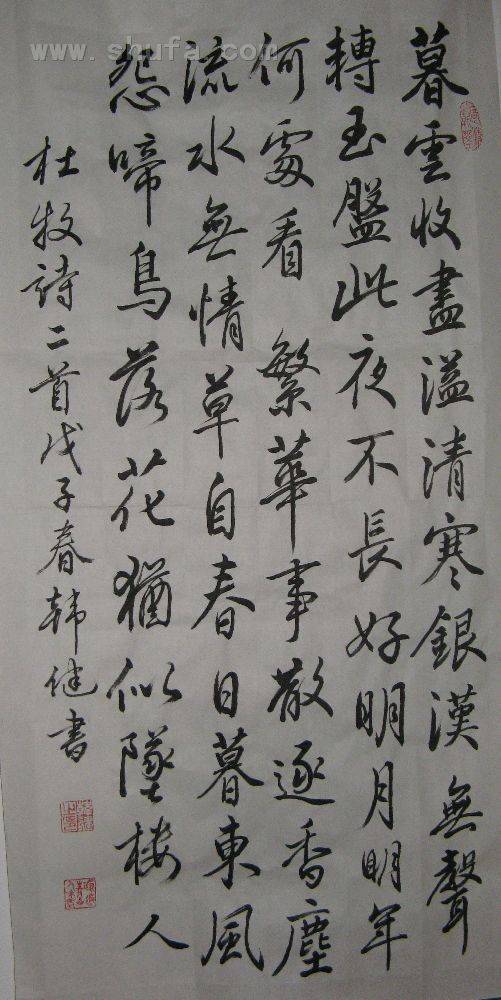 www.shufa.com
暮雲收盡溢清寒銀漢無聲
轉玉盤此夜不長好明月明年
何處看 繁華事散逐香塵
流水無情草自春日暮東風
怨啼鳥落花猶似墜樓人
杜牧詩二首戊子春韓健書